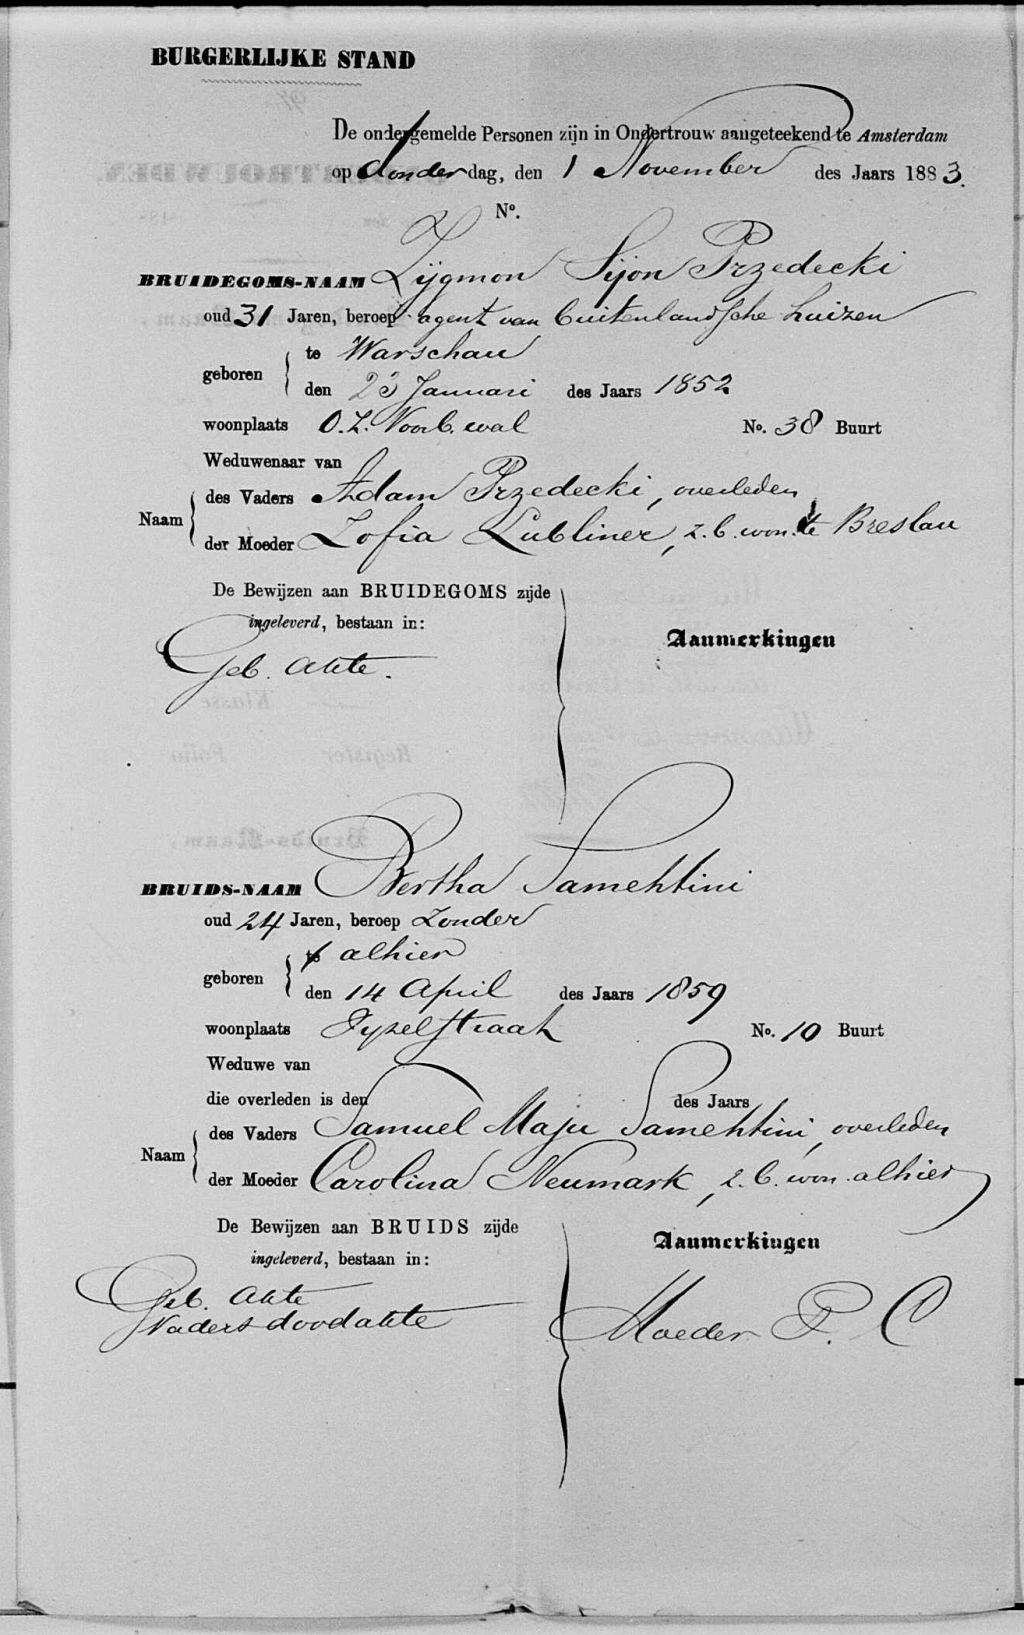 BURGERLIJKE STAND
De ondergemelde Personen zijn in Ondertrouw aangeteekend te Amsterdam
op donderdag, den 1 November des Jaars 1883.
No.
BRUIDEGOMS-NAAM Zijgmon Sijon Przedecki
oud 31 Jaren, beroep agent van buitenlandsche huizen
geboren te Warschau
den 23 Januari des Jaars 1852
woonplaats O.Z. Voorb.wal No. 38 Buurt
Weduwenaar van
Naam des Vaders Adam Przedecki, overleden
der Moeder Zofia Lubliner, z.b. won. te Breslau
De Bewijzen aan BRUIDEGOMS zijde
ingeleverd, bestaan in:
Aanmerkingen
Geb. akte.
BRUIDS-NAAM Bertha Samehtini
oud 24 Jaren, beroep Zonder
geboren te alhier
den 14 April des Jaars 1859
woonplaats Vyzelstraat No. 10 Buurt
Weduwe van
die overleden is den des Jaars
Naam des Vaders Samuel Maju Samehtini, overleden
der Moeder Carolina Neumark, z.b. won. alhier
De Bewijzen aan BRUIDS zijde
ingeleverd, bestaan in:
Aanmerkingen
Geb. akte
Vaders doodakte
Moeder P. C